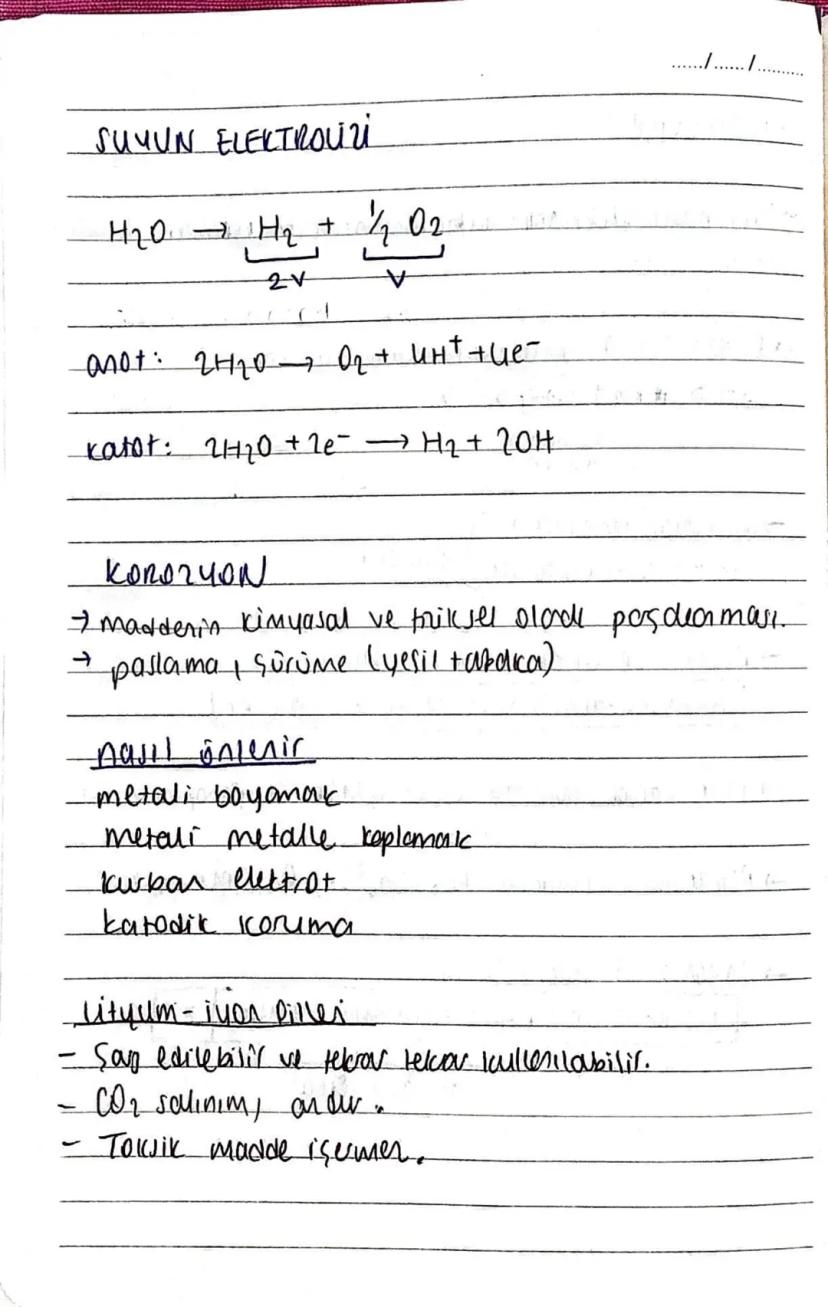 ....../....../..........
SUYUN ELEKTROLİZİ
H₂O → H₂ + ½ O₂
2V V
anot: 2H₂O → O₂ + 4H⁺ + 4e⁻
katot: 2H₂O + 2e⁻ → H₂ + 2OH
KOROZYON
→ maddenin kimyasal ve fiziksel olarak parçalanması.
→ paslama, çürüme (yeşil tabaka)
nasıl önlenir
metali boyamak
metali metalle kaplamak
kurban elektrot
katodik koruma
Lityum-iyon Pilleri
- Şarj edilebilir ve tekrar tekrar kullanılabilir.
- CO₂ salınımı azdır.
- Toksik madde içermez.